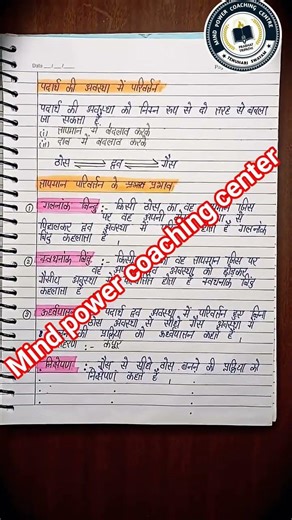 MIND POWER COACHING CENTRE
Date __/__/__
पदार्थ की अवस्था में परिवर्तन
पदार्थ की अवस्था को निम्न रूप से दो तरह से बदला
जा सकता है
(i) तापमान में बदलाव करके
(ii) दाब में बदलाव करके
ठोस ⇌ द्रव ⇌ गैस
तापमान परिवर्तन के प्रभाव
① गलनांक बिन्दु :- किसी ठोस का वह तापमान जिस
पर वह अपनी
पिघलकर द्रव अवस्था में होता है गलनांक
बिंदु कहलाता है।
② क्वथनांक बिंदु :- किसी वह तापमान जिस पर
वह अवस्था को छोड़कर
गैसीय अवस्था में परिवर्तित होता है क्वथनांक बिंदु
कहलाता है
③ पदार्थ द्रव अवस्था में परिवर्तन हुए बिना
ठोस अवस्था से सीधे गैस अवस्था में
प्रक्रिया को ऊर्ध्वपातन कहा है।
:- कपूर
निक्षेपण :- गैस से सीधे ठोस बनने की प्रक्रिया को
निक्षेपण कहा है।
Mind power coaching center